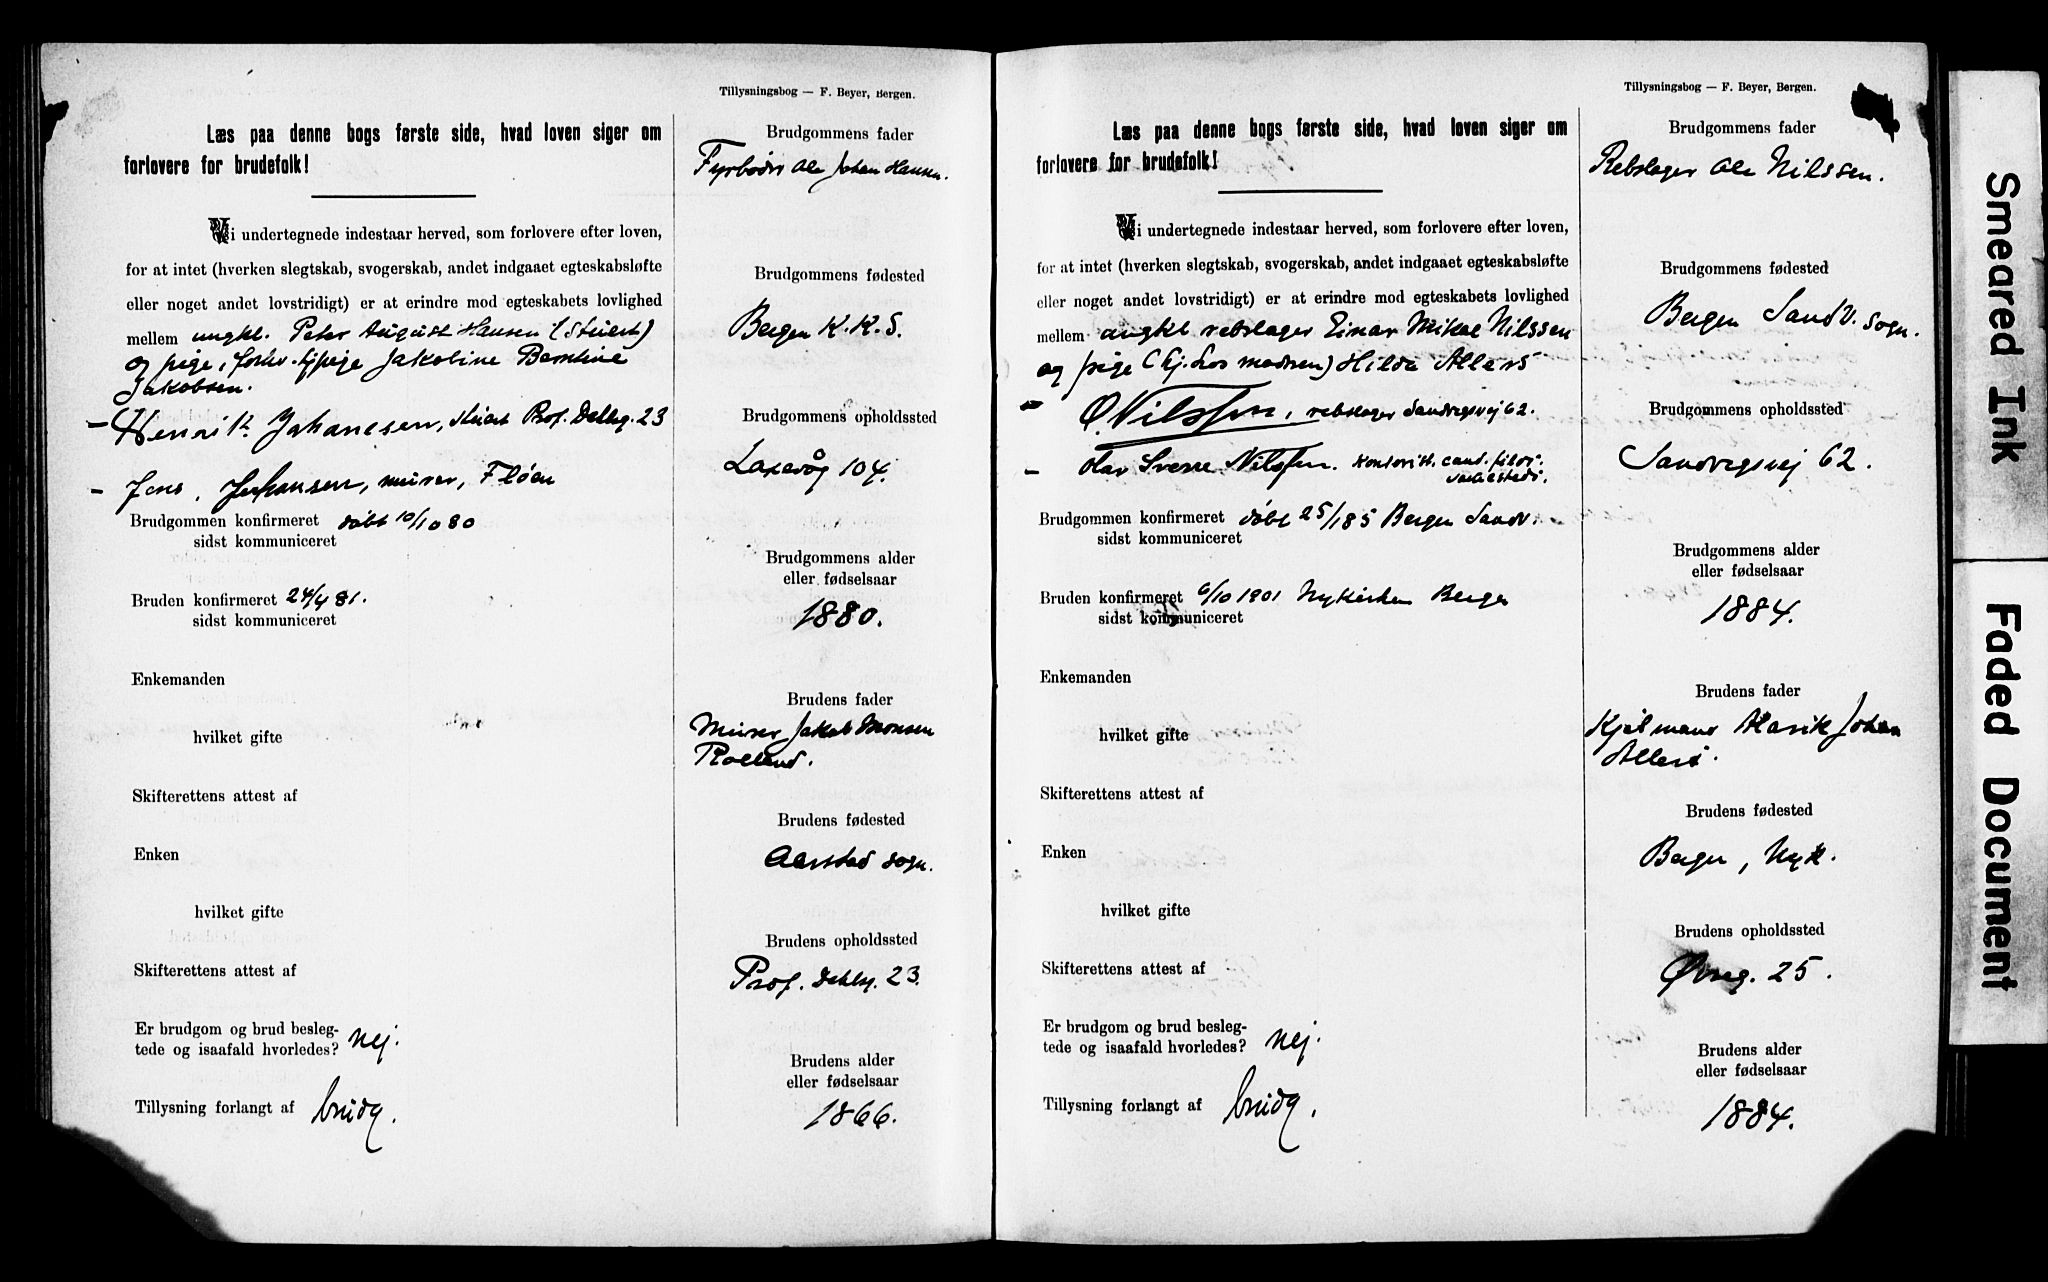 Tillysningsbog — F. Beyer, Bergen.
Læs paa denne bogs første side, hvad loven siger om
forlovere for brudefolk!
Vi undertegnede indestaar herved, som forlovere efter loven,
for at intet (hverken slegtskab, svogerskab, andet indgaaet egteskabsløfte
eller noget andet lovstridigt) er at erindre mod egteskabets lovlighed
mellem ungkl. Peter August Hansen (Stuert)
og pige, Jakobine Berntine
Jakobsen.
- Henrik Johannesen, stuert Prof. Dahlsg. 23
- Jens Johansen, murer, Fløen
Brudgommen konfirmeret døbt 10/10 80
sidst kommuniceret
Bruden konfirmeret 24/4 81.
sidst kommuniceret
Enkemanden
hvilket gifte
Skifterettens attest af
Enken
hvilket gifte
Skifterettens attest af
Er brudgom og brud besleg-
tede og isaafald hvorledes? nej.
Tillysning forlangt af brudg.
Brudgommens fader
Fyrbøder Ole Johan Hansen.
Brudgommens fødested
Bergen K. K. S.
Brudgommens opholdssted
Laxevåg 104.
Brudgommens alder
eller fødselsaar
1880.
Brudens fader
Murer Jakob Monsen
Rolland.
Brudens fødested
Aarstad sogn.
Brudens opholdssted
Prof. Dahlsg. 23.
Brudens alder
eller fødselsaar
1866.
Tillysningsbog — F. Beyer, Bergen.
Læs paa denne bogs første side, hvad loven siger om
forlovere for brudefolk!
Vi undertegnede indestaar herved, som forlovere efter loven,
for at intet (hverken slegtskab, svogerskab, andet indgaaet egteskabsløfte
eller noget andet lovstridigt) er at erindre mod egteskabets lovlighed
mellem ungkl rebslager Einar Mikal Nilssen
og pige (hj. hos modren) Hilda Allers
- O. Nilssen, rebslager Sandvigsvej 62.
- Olav Sverre Nilssen. Kontorist. cand. filos.
Brudgommen konfirmeret døbt 25/1 85 Bergen Sandv.
sidst kommuniceret
Bruden konfirmeret 6/10 1901 Nykirken Bergen
sidst kommuniceret
Enkemanden
hvilket gifte
Skifterettens attest af
Enken
hvilket gifte
Skifterettens attest af
Er brudgom og brud besleg-
tede og isaafald hvorledes? nej.
Tillysning forlangt af brudg.
Brudgommens fader
Rebslager Ole Nilssen.
Brudgommens fødested
Bergen Sandv. sogn.
Brudgommens opholdssted
Sandvigsvej 62.
Brudgommens alder
eller fødselsaar
1884.
Brudens fader
Kjølmand Alarik Johan
Allers.
Brudens fødested
Bergen, Nyk.
Brudens opholdssted
Øvreg. 25.
Brudens alder
eller fødselsaar
1884.
Smeared Ink
Faded Document